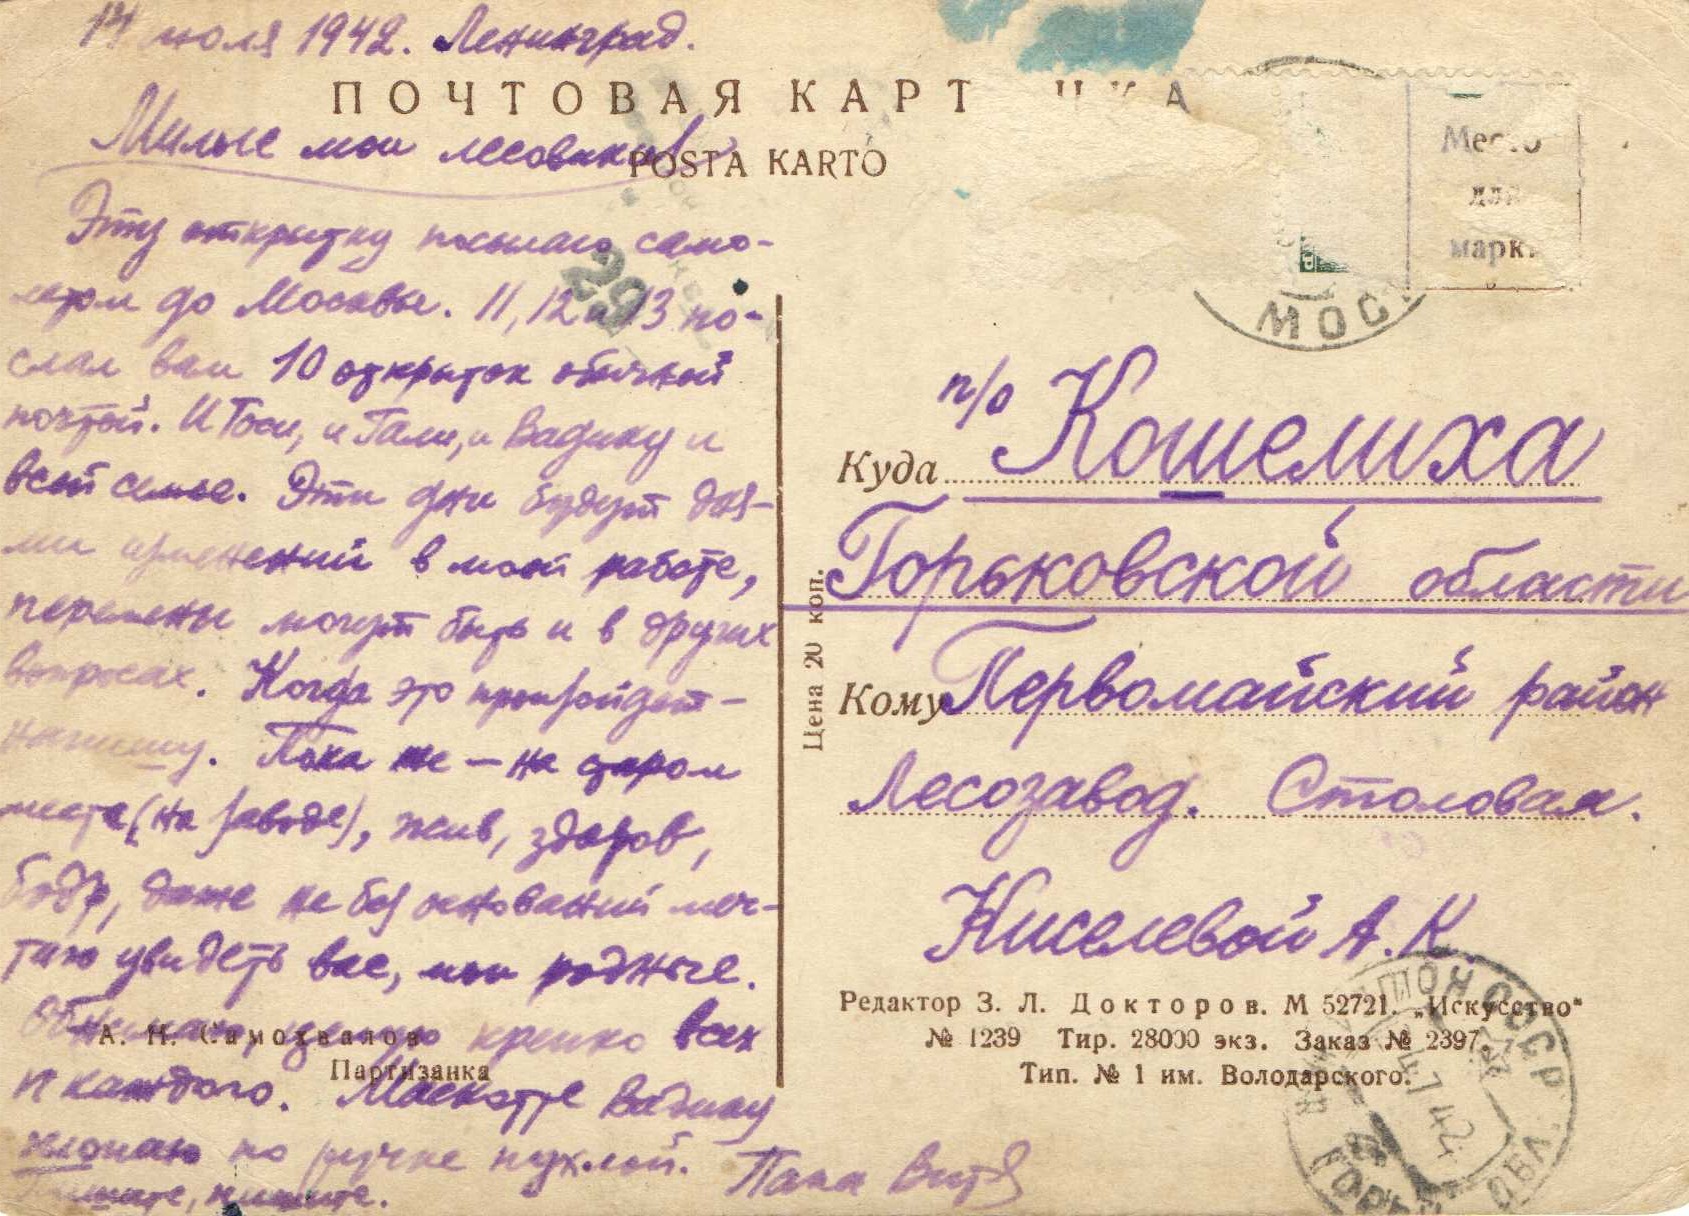 14 июля 1942. Ленинград.
ПОЧТОВАЯ КАРТ ЧКА
POSTA KARTO
Милые мои лесовики!
Эту открытку посылаю само-
летом до Москвы. 11, 12 и 13 по-
слал вам 10 открыток обычной
почтой. И Тоси, и Гали, и Вадику и
всей семье. Эти дни будут дня-
ми изменений в моей работе,
перемены могут быть и в других
вопросах. Когда это произойдет –
напишу. Пока же – на старом
месте (на заводе), жив, здоров,
бодр, даже не без оснований меч-
таю увидеть вас, мои родные.
Обнимаю, целую крепко всех
и каждого. Маскотте Вадику
хлопаю по ручке пухлой. Папа Витя
Пишите, пишите.
А. Н. Самохвалов
Партизанка
Цена 20 коп.
Место
для
марк.
МОС
29
п/о Кошелиха
Куда
Горьковской области
Кому Первомайский район
Лесозавод. Столовая.
Киселевой А. К.
Редактор З. Л. Докторов. М 52721. „Искусство"
№ 1239 Тир. 28000 экз. Заказ № 2397.
Тип. № 1 им. Володарского.
ГОРЬК ОБЛ.